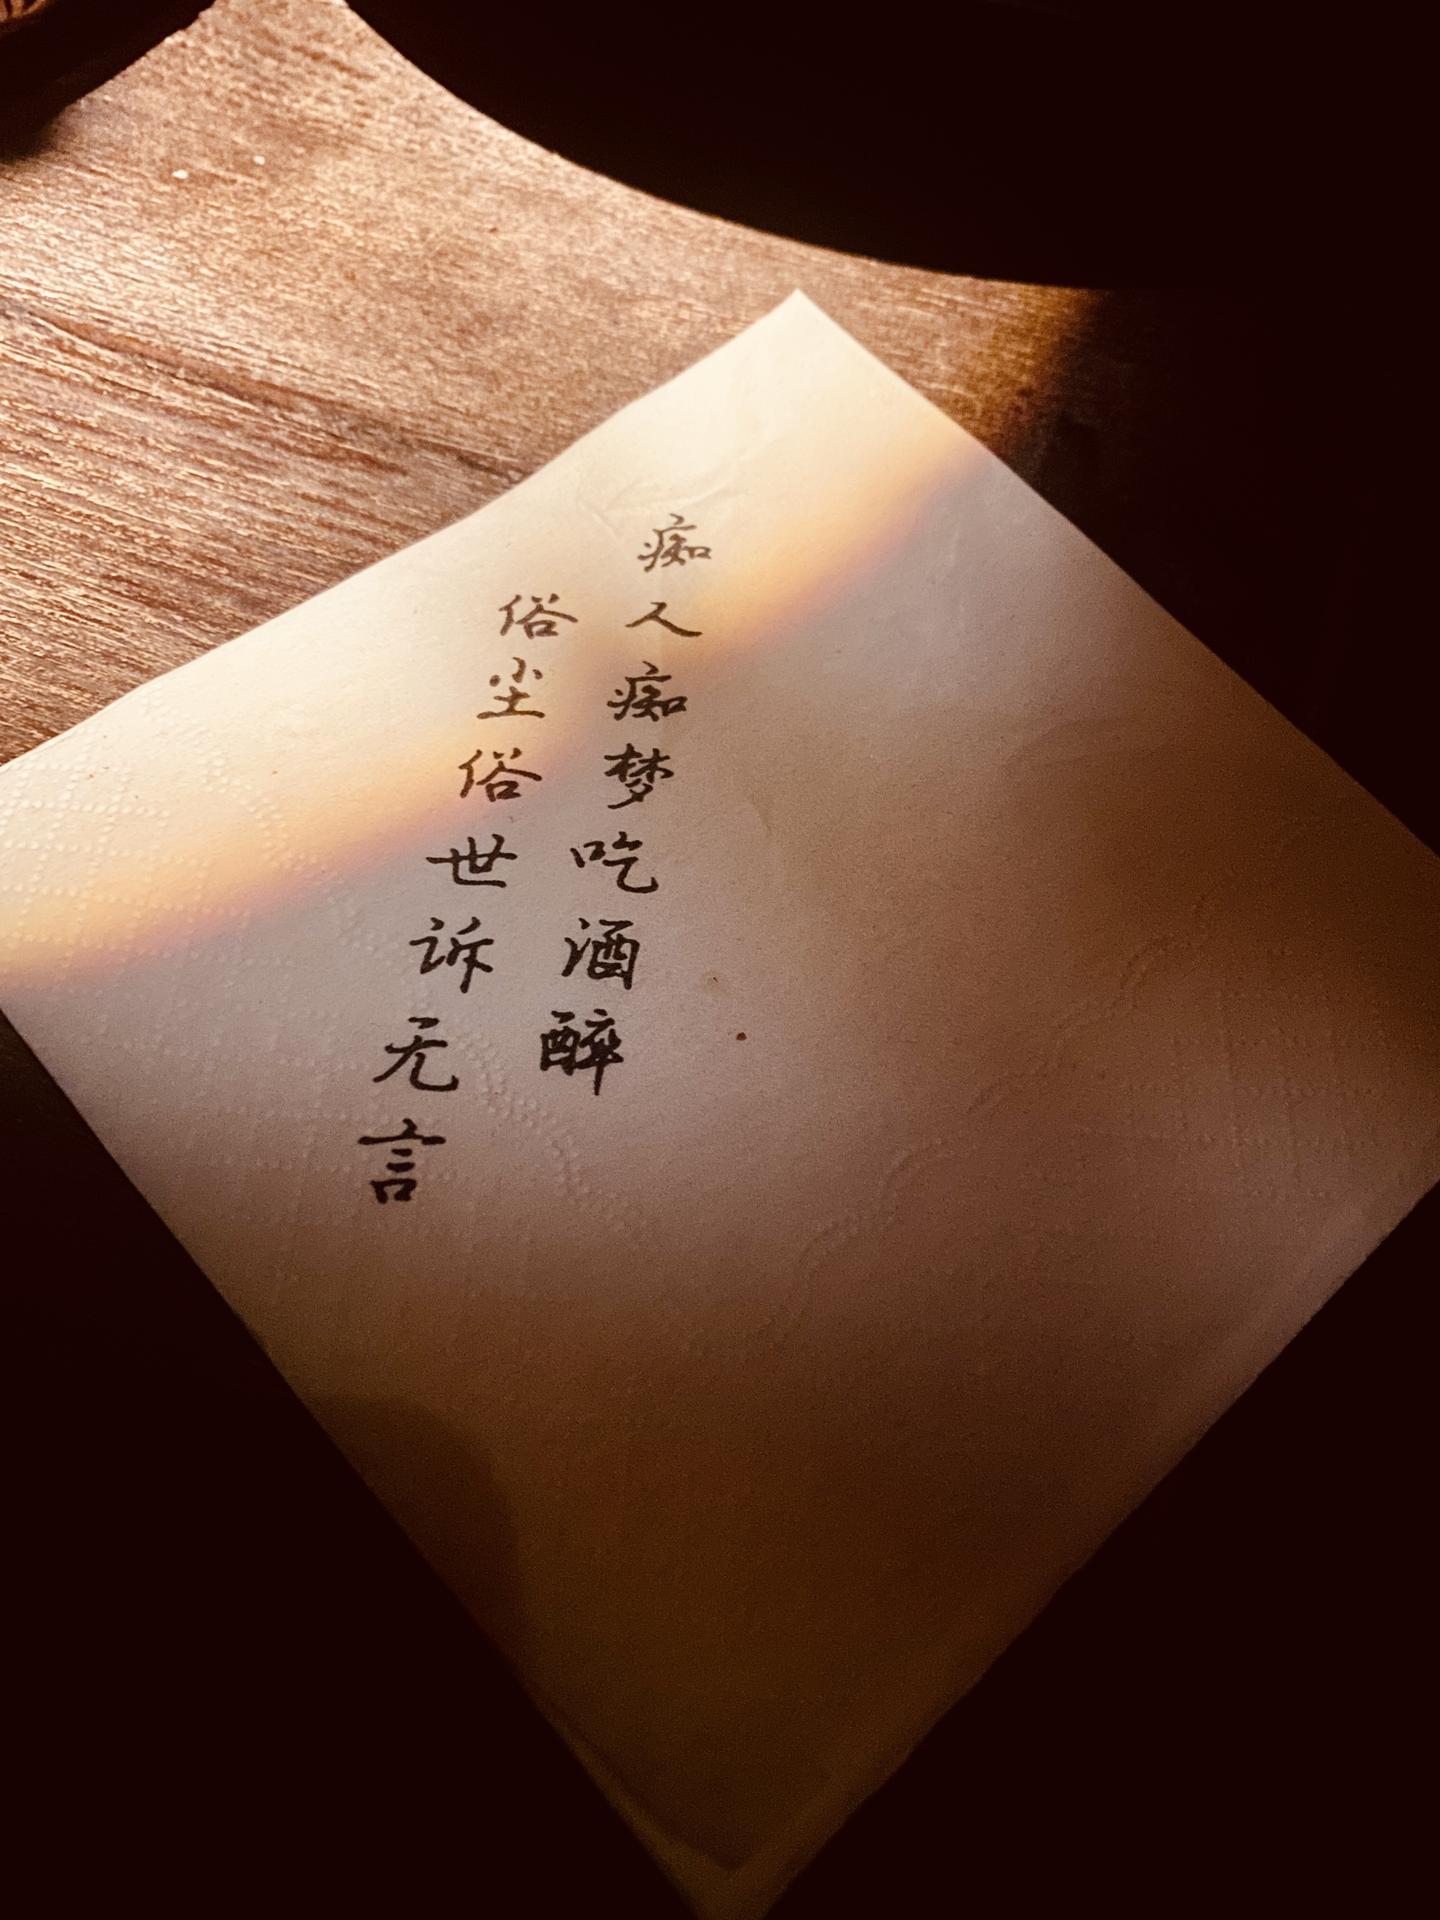 痴人痴梦吃酒醉
俗尘俗世诉无言